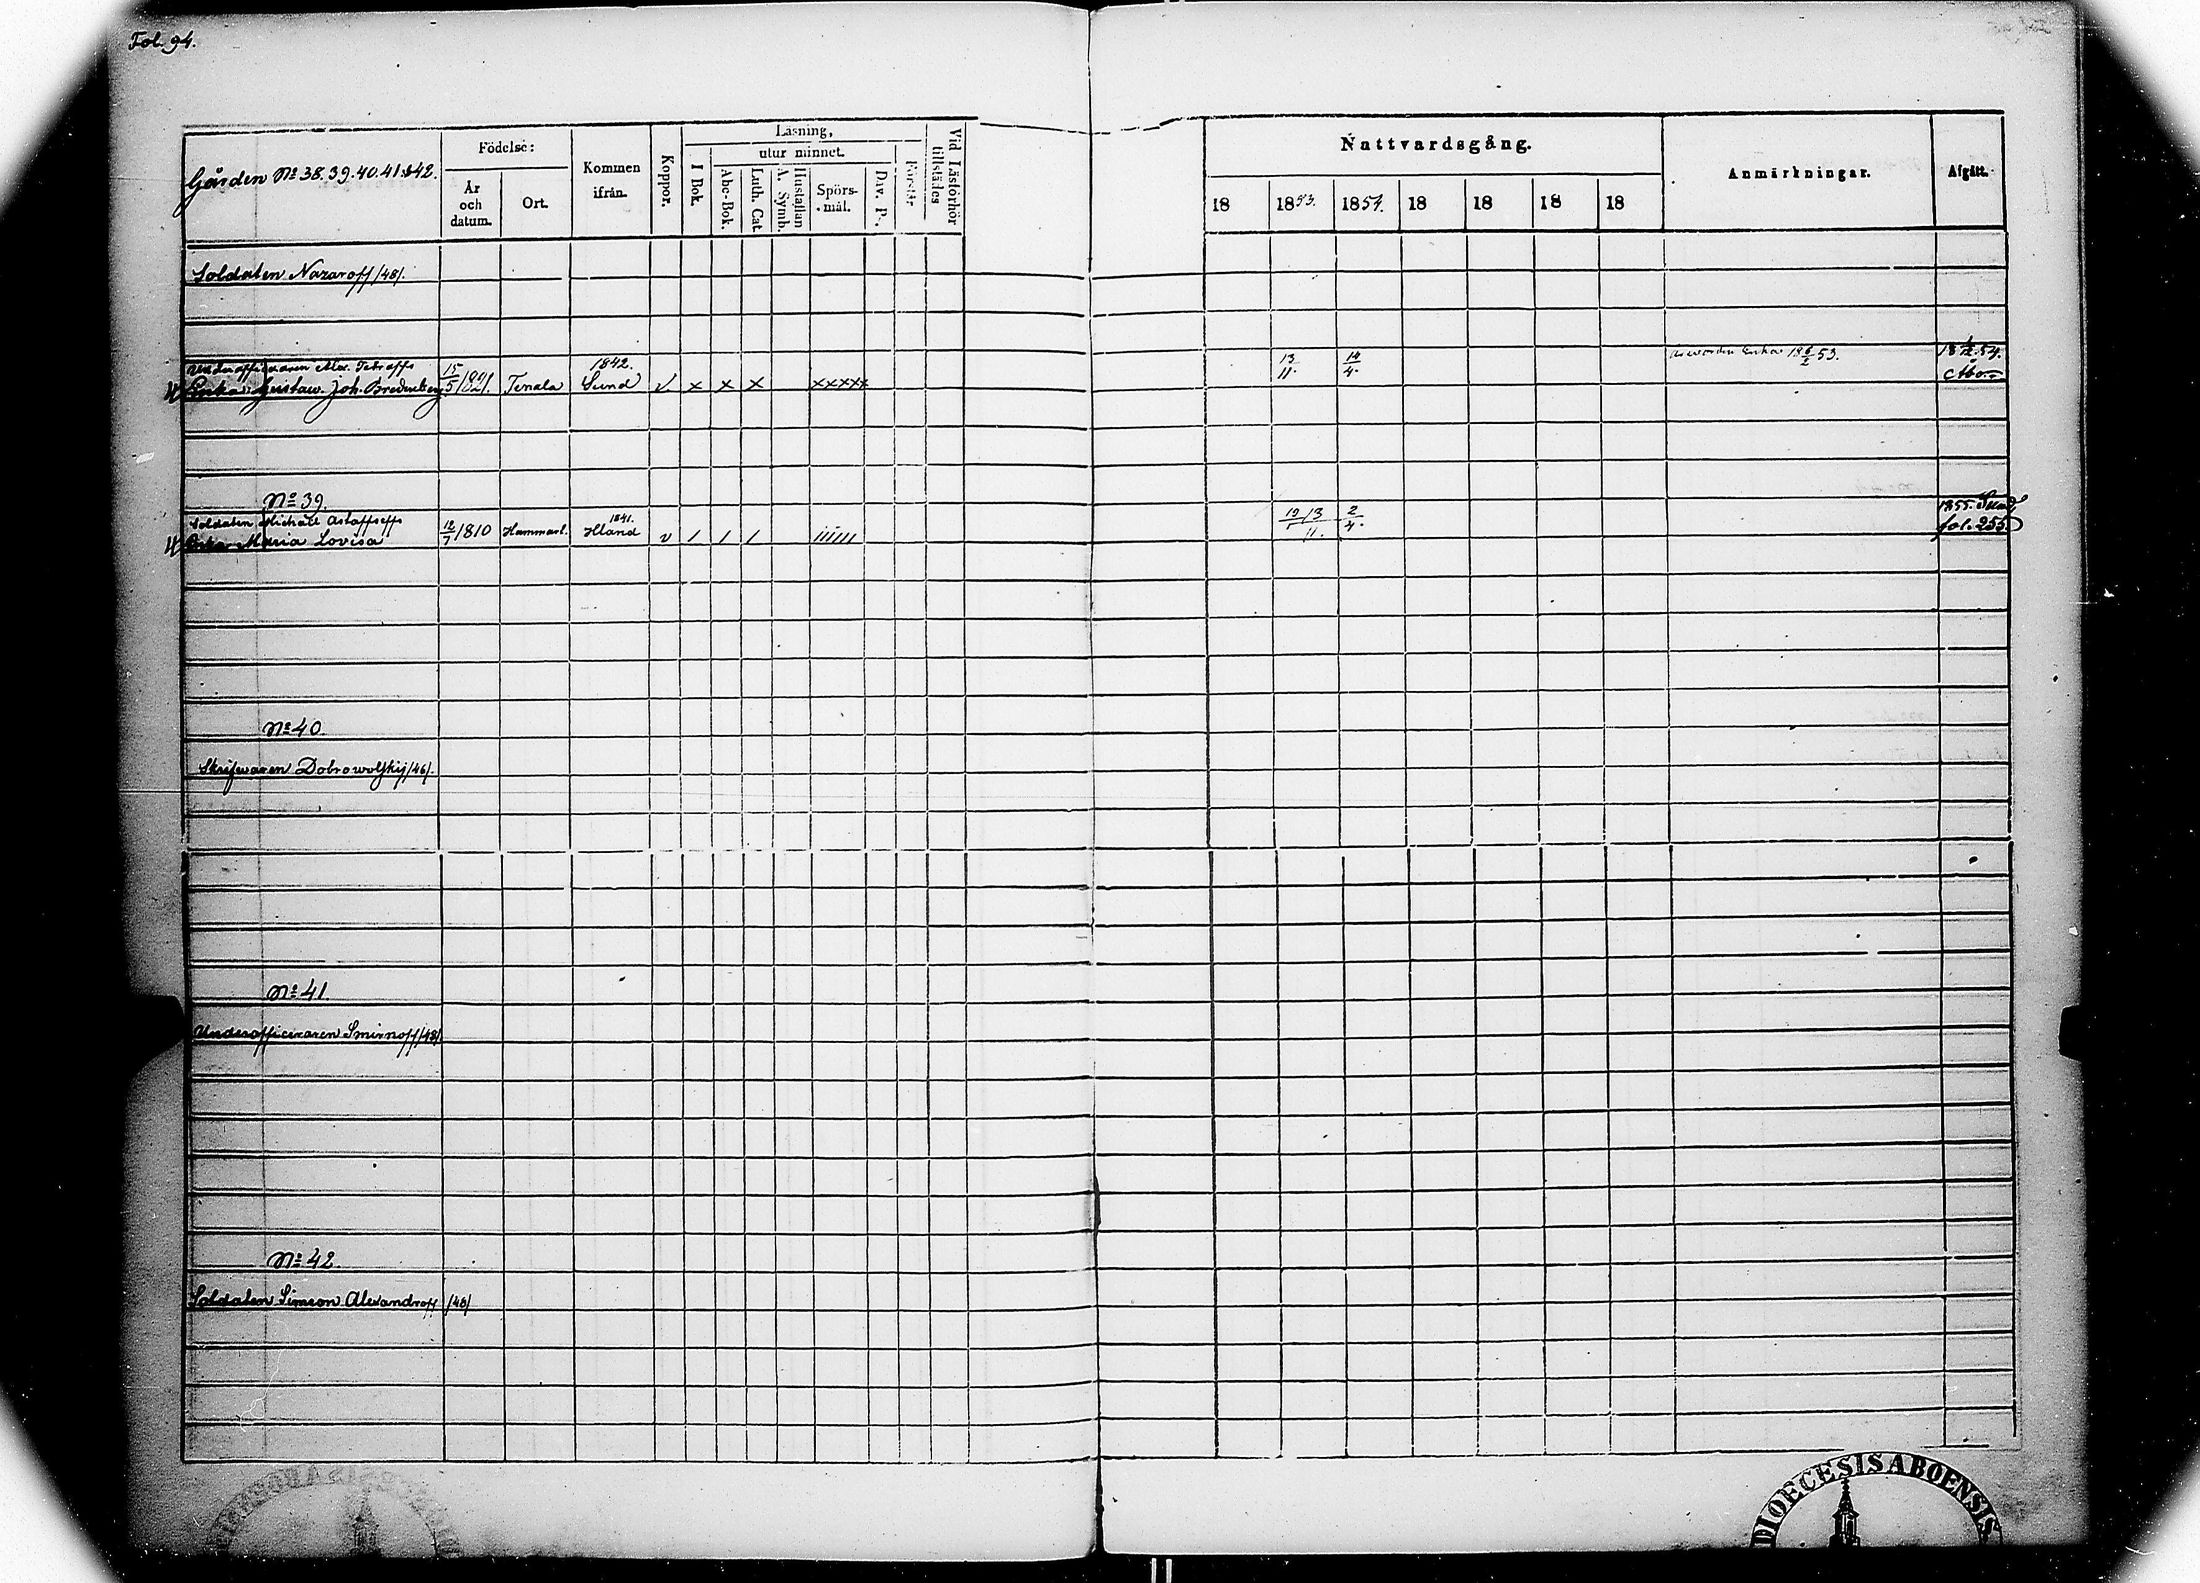 Fol. 94.
Gården No 38. 39. 40. 41. & 42.
Födelse:
År och datum.
Ort.
Kommen ifrån.
Koppor.
Läsning,
I Bok.
utur minnet.
Abc-Bok.
Luth. Cat.
A. Symb.
Hustaflan
Spörsmål.
Dav. Ps.
Förstår
Vid Läsförhör tillstädes
Nattvardsgång.
18 1853. 1854. 18 18 18 18
Anmärkningar.
Afgått.
Soldaten Nazaroff /48/.
Underofficeraren Alex.
Enka Gustaw. Joh. Bredenberg 15/5 1821. Tenala 1842. Sund v x x x xxxxx 13/11. 14/4. Enka 18 6/2 53. 18 54. Åbo
No 39.
Soldaten Michael
Enka Maria Lovisa 12/7 1810 Hammarl. 1841. v / / / 13/11. 2/4. 1855. Sund fol. 255
No 40.
Skrifwaren Dobrowolskij /46/.
No 41.
Underofficeraren Smirnoff /48/
No 42.
Soldaten Simeon Alexandroff /48/
DIOECESIS ABOENSIS